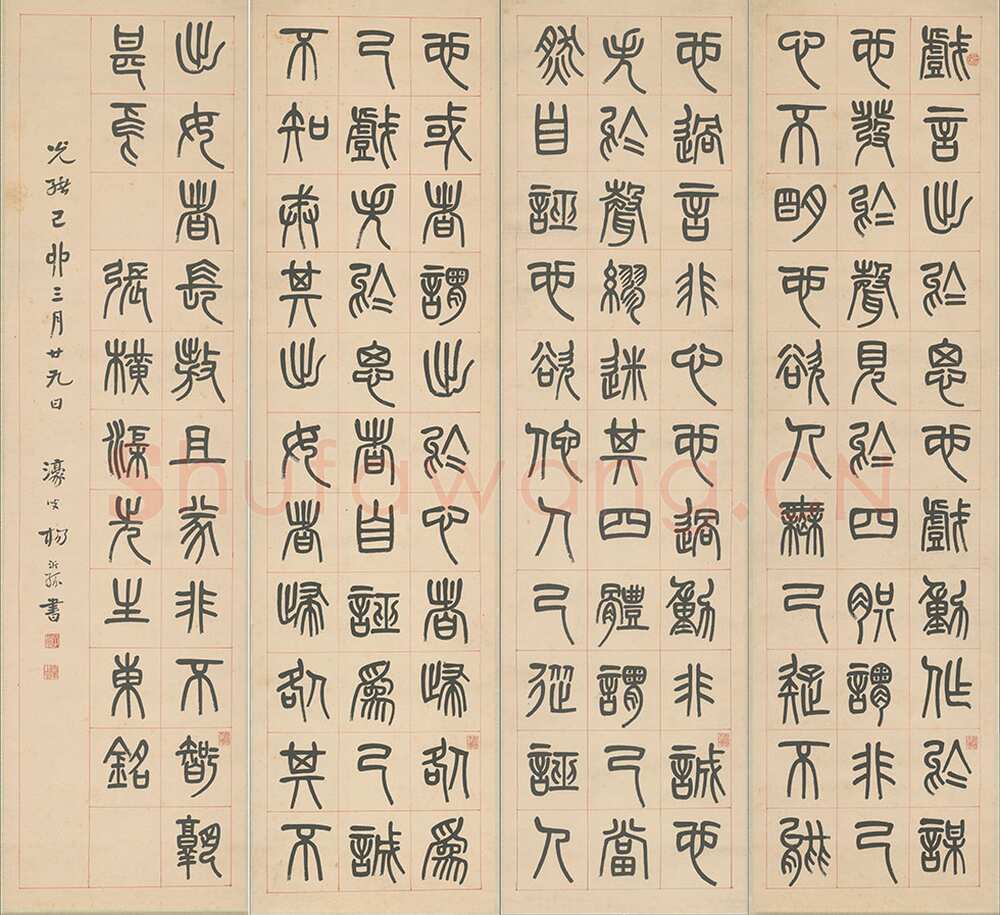 戲言出於思也戲動作於謀
也發於聲見於四肢謂非己
心不明也欲人無己疑不能
也過言非心也過動非誠也
失於聲繆迷其四體謂己當
然自誣也欲他人己從誣人
也或者謂出於心者歸咎爲
己戲失於思者自誣爲己誠
不知戒其出女者歸咎其不
出女者長敖且㒸非不智孰
甚焉 張橫渠先生東銘
光緒己卯三月廿九日 濠叟楊沂孫書
Shufawang.CN